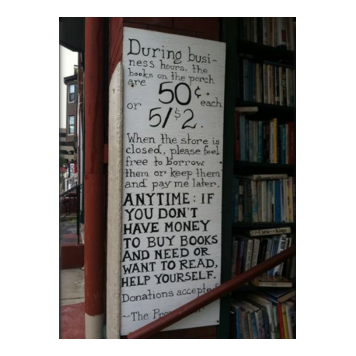 During busi-
ness hours, the
books on the porch
are 50¢ each
or 5/$2.
When the store is
closed, please feel
free to borrow
them or keep them
and pay me later.
ANYTIME: IF
YOU DON'T
HAVE MONEY
TO BUY BOOKS
AND NEED OR
WANT TO READ,
HELP YOURSELF.
Donations accepted
~The